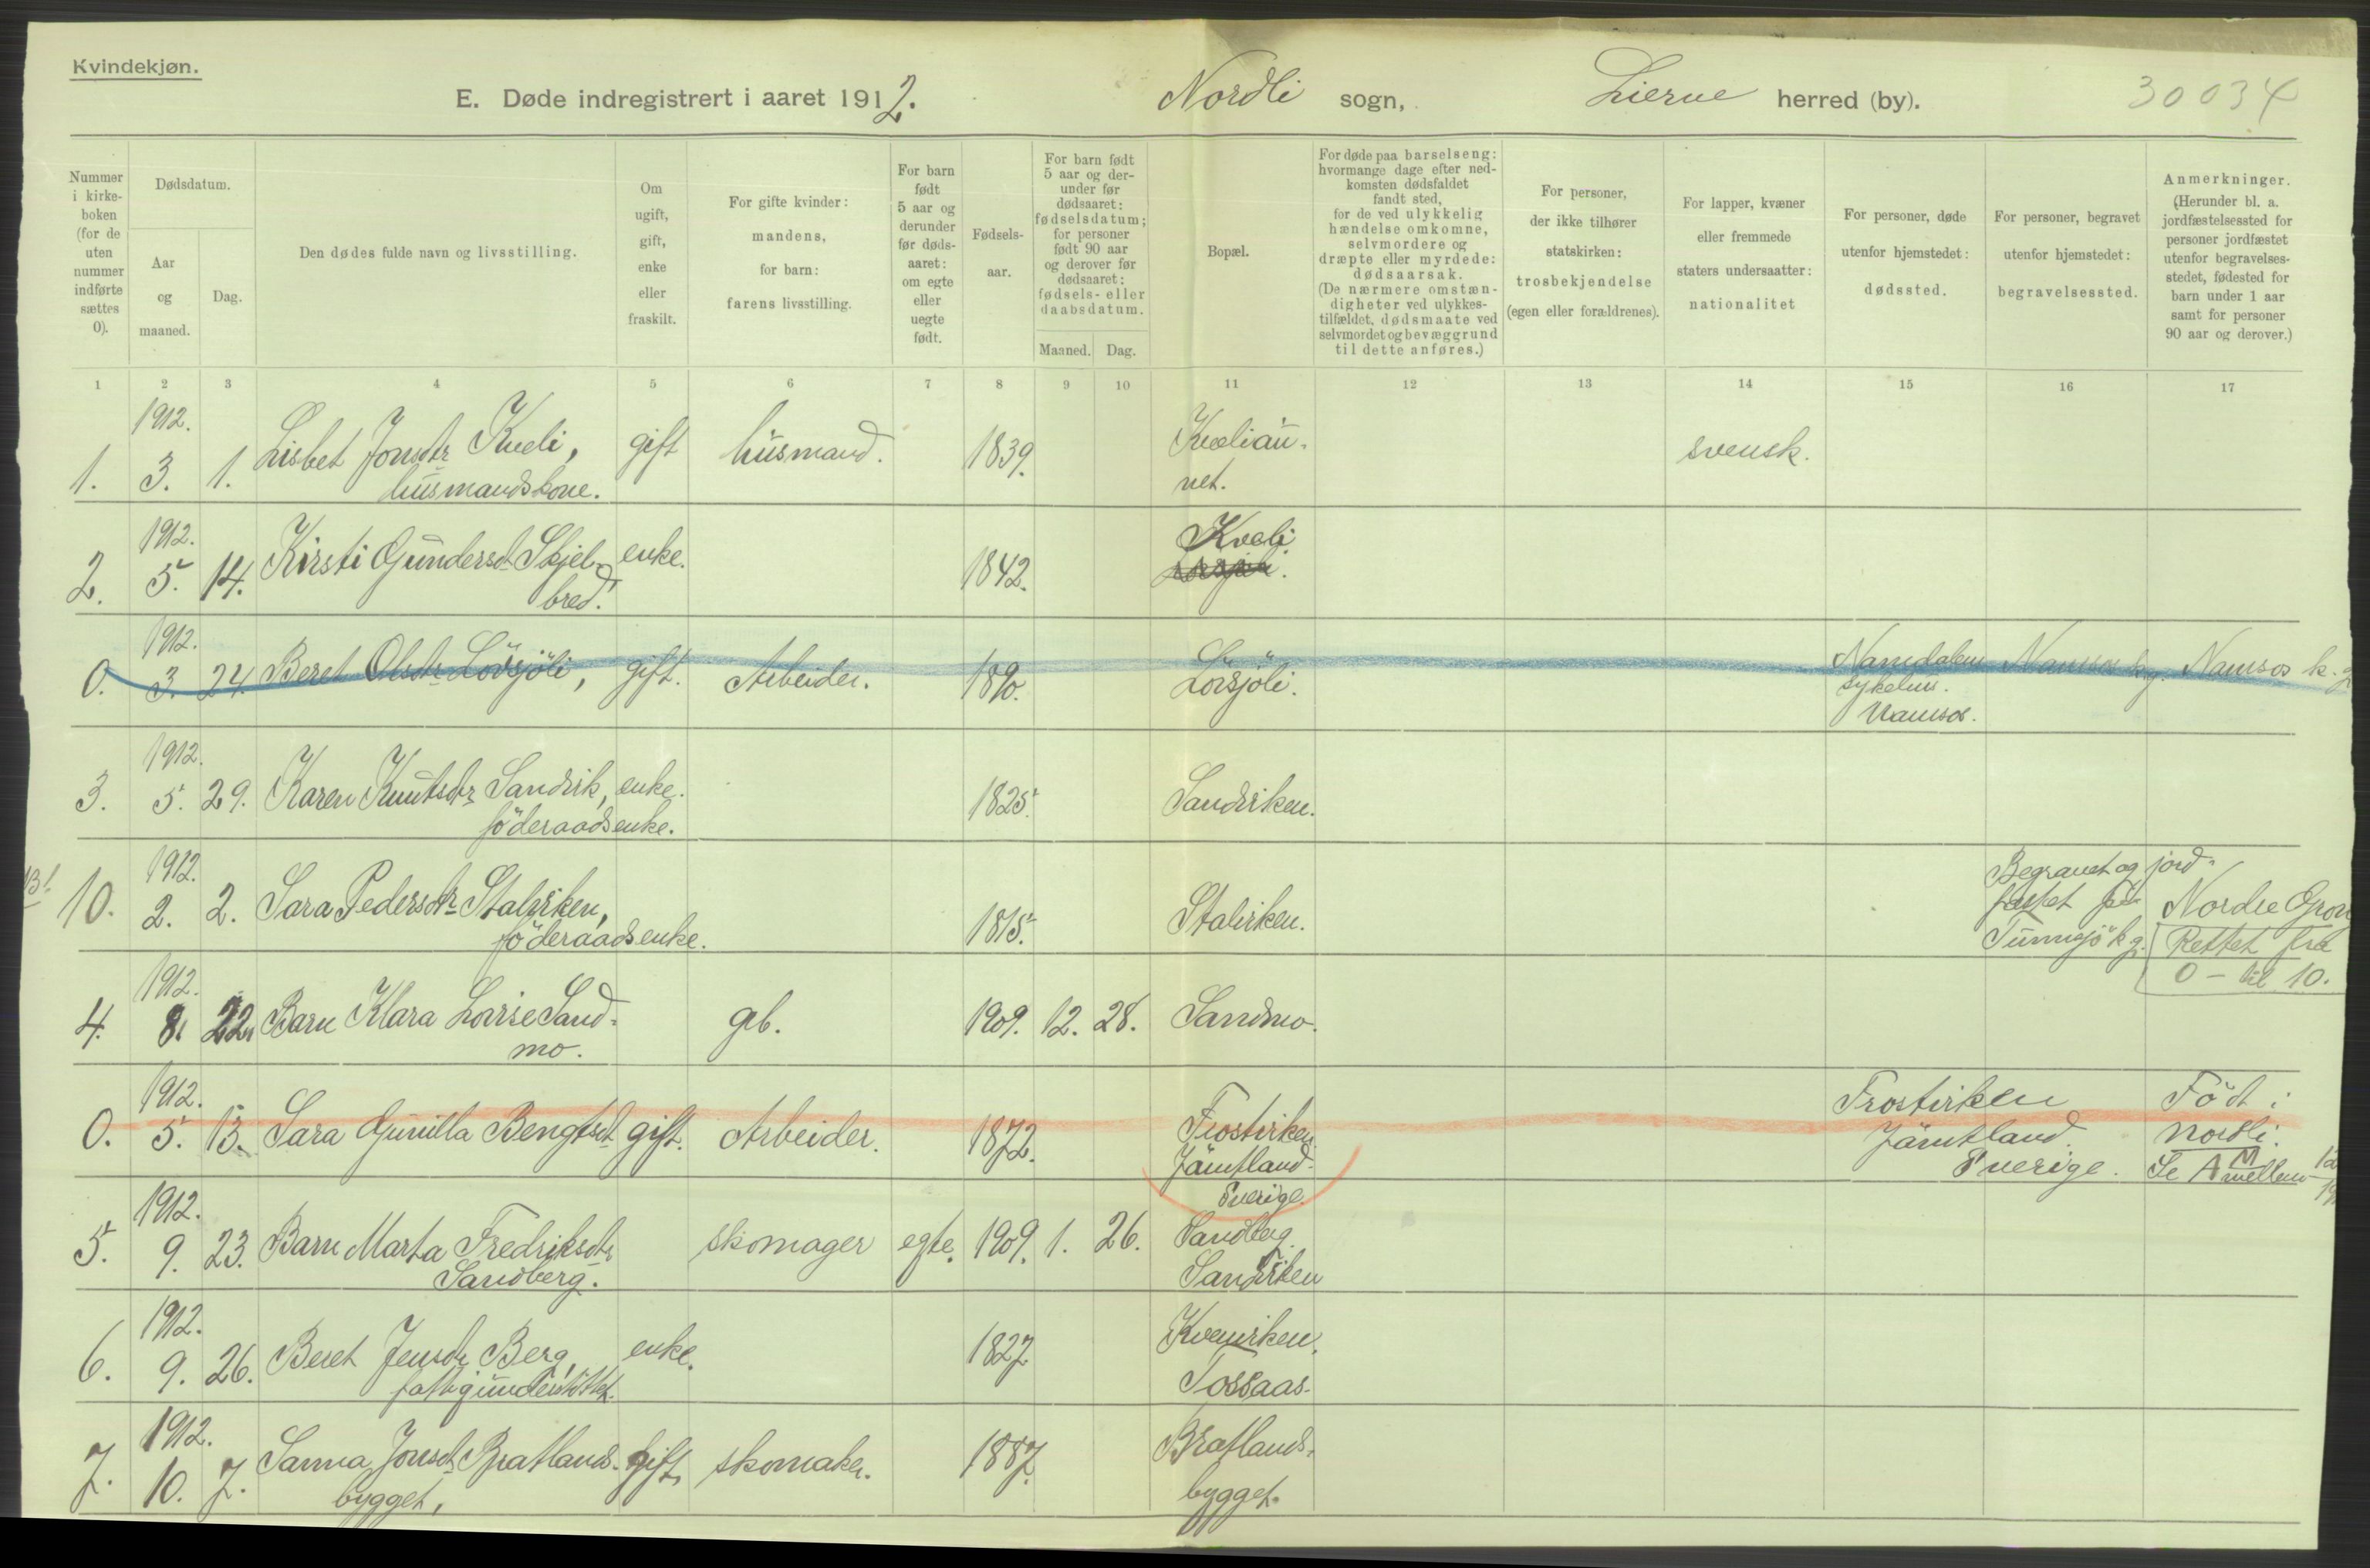 Kvindekjøn.
E. Døde indregistrert i aaret 1912. Nordli sogn, Lierne herred (by). 30034
Nummer i kirkeboken (for de uten nummer indførte sættes 0).
Dødsdatum.
Aar og maaned.
Dag.
Den dødes fulde navn og livsstilling.
Om ugift, gift, enke eller fraskilt.
For gifte kvinder: mandens, for barn: farens livsstilling.
For barn født 5 aar og derunder før dødsaaret: om egte eller uegte født.
Fødselsaar.
For barn født 5 aar og derunder før dødsaaret: fødselsdatum; for personer født 90 aar og derover før dødsaaret: fødsels- eller daabsdatum.
Maaned. Dag.
Bopæl.
For døde paa barselseng: hvormange dage efter nedkomsten dødsfaldet fandt sted, for de ved ulykkelig hændelse omkomne, selvmordere og dræpte eller myrdede: dødsaarsak. (De nærmere omstændigheter ved ulykkestilfældet, dødsmaate ved selvmordet og bevæggrund til dette anføres.)
For personer, der ikke tilhører statskirken: trosbekjendelse (egen eller forældrenes).
For lapper, kvæner eller fremmede staters undersaatter: nationalitet
For personer, døde utenfor hjemstedet: dødssted.
For personer, begravet utenfor hjemstedet: begravelsessted.
Anmerkninger. (Herunder bl. a. jordfæstelsessted for personer jordfæstet utenfor begravelsesstedet, fødested for barn under 1 aar samt for personer 90 aar og derover.)
1 2 3 4 5 6 7 8 9 10 11 12 13 14 15 16 17
1912.
1. 3. 1. Lisbet Jonsdtr Kveli, gift husmand. 1839. Kvelian- svensk.
husmandskone. net.
1912. Kveli
2. 5. 14. Kirsti Gundersd Skjel- enke. 1842.
bred.
1912.
0. 3. 24. Beret Olsdtr Lövsjöli, gift. Arbeider. 1890. Lövsjöli. Namdalens Namsos kg. Namsos k.g
sykehus.
Namsos.
1912.
3. 5. 29. Karen Knutsdtr Sandvik, enke. 1825. Sandviken.
föderaadsenke.
1912. Begravet og jord-
10. 2. 2. Sara Pedersdtr Stalviken, 1815. Stalviken. fæstet på Nordre Gron
föderaadsenke. Tunnsjö kg. Rettet fra
0 - til 10.
1912.
4. 8. 22. Barn Klara Lovise Sand- gb. 1909. 12. 28. Sandmo.
mo.
1912.
0. 5. 13. Sara Gunilla Bengtsd gift. Arbeider. 1872. Frostviken Frostviken Født i
Jämtland. Jämtland. Nordli.
Sverige. Sverige. Se A M mellem
1912.
5. 9. 23. Barn Marta Fredriksdtr skomager egte. 1909. 1. 26. Sandberg.
Sandberg. Sandviken
1912.
6. 9. 26. Beret Jensdtr Berg, enke. 1827. Kvemviken.
fattigunderstöttet. Tossaas.
1912.
7. 10. 7. Sanna Jonsd Bratlands- gift, skomaker. 1887. Bratlands-
bygget, bygget.